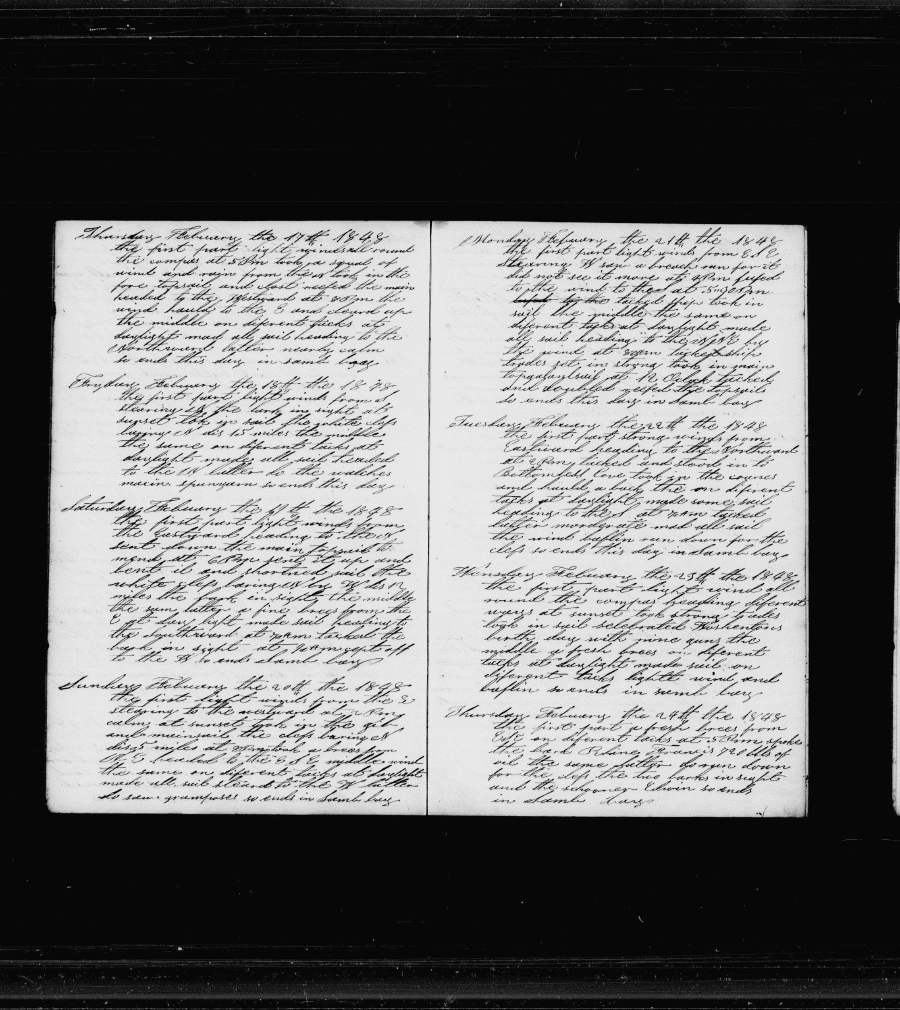 Thursday Febuary the 17th 1848
the first part light winds all round
the compas at 5 Pm took a squal of
wind and rain from the took in the
fore topsail and clost reefed the main
headed to the Westward at Pm the
wind hauld to the E and cleard up
the middle on diferent tacks at
daylight mad all sail heading to the
Northward latter nearly calm
so ends this day in samb bay
Fryday Febuary the 18th the 1848
the first part light winds from
stearing the bark in sight at
sunset tok in sail the white clefs
baring N dis 15 miles the middle
the same on diferent tacks at
daylight made all sail headed
to the latter do the watches
macin spunyarn so ends this day
Saturday Febuary the the 1848
the first part light winds from
the Eastward heading to the N
sent down the main topsail to
mend at 6 Pm sent it up and
bent it and shortned sail the
white clefs baring N by W dis
miles the bark in sight the middle
the sam latter a fine brees from the
E at day light made sail heading to
the Southward at Am tacked the
bark in sight at Am cept off
to the W so ends samb bay
Sunday Febuary the 20th the 1848
the first light winds from the E
stearing to the westward at
calm at sunset took in the gib
and mainsail the clefs baring N
dis 25 miles at Pm took a brees from
N E headed to the E S E middle wind
the same on diferent tacks at daylight
made all sail steard to the W latter
do saw grampuses so ends in samb bay
Monday Febuary the 21th the 1848
the first part light winds from E S E
stearing W saw a breach ran for it
did not see it more at Pm lufed
to the wind to the at Pm
tacked ship took in
sail the middle the same on
diferent tacks at daylight made
all sail heading to the by
the wind at Am tacked ship
trades set in strong took in main
topgalantsail at 12 Oclock tacked
and doubel reefed the topsails
so ends this day in samb bay
Tuesday Febuary the 22th the 1848
the first part strong winds from
Eastward heading to the Northward
at 2 Pm tacked and stood in to
took in the courses
and hauld a back the on diferent
tacks at daylight made some sail
heading to the S at Am tacked
latter mordgrate mad all sail
the wind baflin run down for the
clefs so ends this day in samb bay
Wensday Febuary the 23th the 1848
the first part light wind all
round the compas heading diferent
ways at sunset took strong trades
took in sail selebrated Washentons
berth day with nine guns the
middle a fresh brees on diferent
tacks at daylight made sail on
diferent tacks light wind and
baflin so ends in samb bay
Thursday Febuary the 24th the 1848
the first part a fresh brees from
on diferent tacks at 5 Pm spoke
the bark Francis 720 bbls of
oil the same latter do run down
for the clefs the two barks in sight
and the schooner Edwin so ends
in samb bay